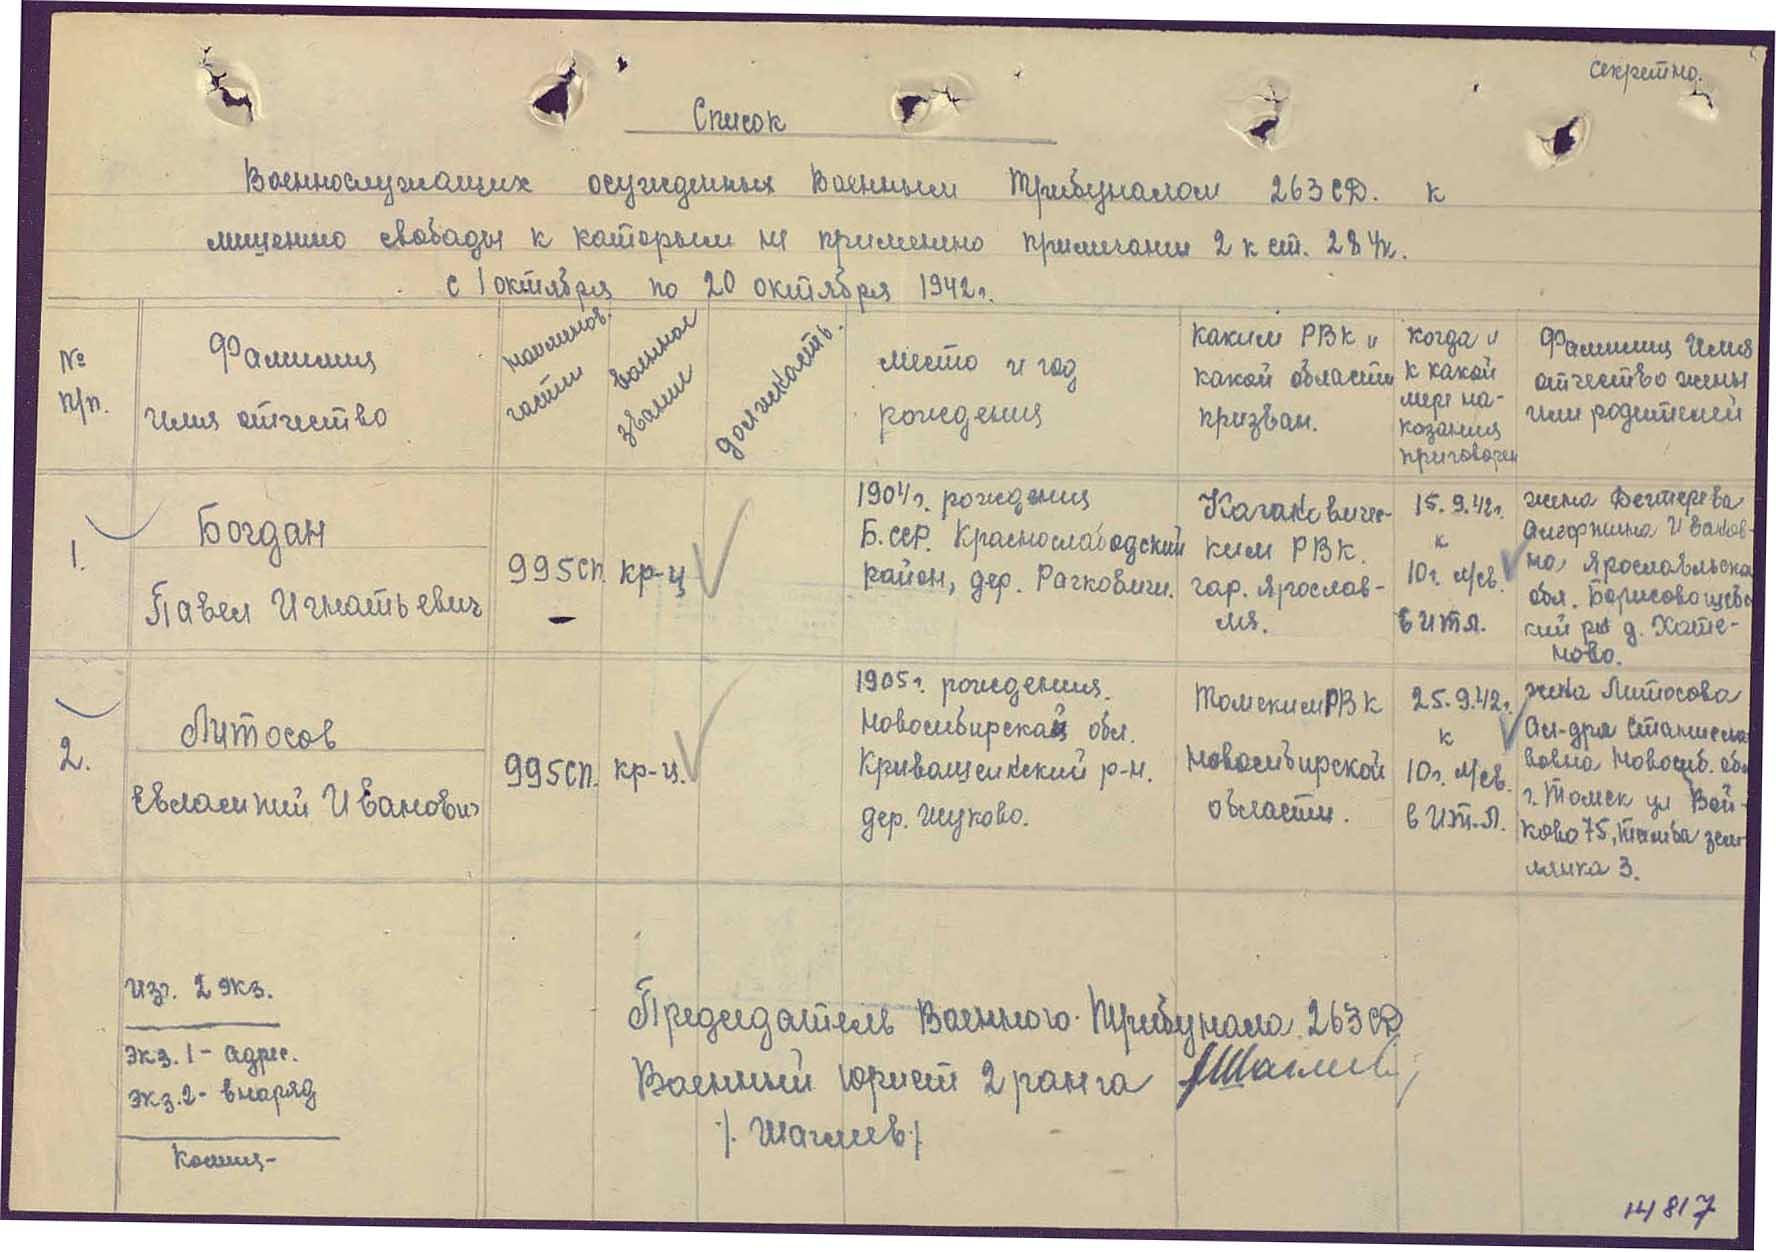 Секретно.
Список
Военнослужащих осужденных Военным Трибуналом 263 СД. к
лишению свободы к которым не применено примечание 2 к ст. 28 УК.
с 1 октября по 20 октября 1942г.
№
п/п.
Фамилия
Имя отчество
наименов.
части
военное
звание
должность.
место и год
рождения
каким РВК и
какой области
призван.
когда и
к какой
мере на-
казания
приговорен
Фамилия Имя
отчество жены
или родителей
1.
Богдан
Павел Игнатьевич
995СП.
кр-ц
1904г. рождения
Б.ССР. Краснослабодский
район, дер. Рачковичи.
ким РВК.
гор. Ярослав-
ля.
15.9.42г.
к
10г. л/св.
в ИТЛ.
жена Дегтерева
Иванов-
на, Ярославльска
обл.
кий рн д. Хате-
ново.
2.
Литосов
Евлампий Иванович
995СП.
кр-ц.
1905г. рождения.
Новосибирской обл.
Кривошеинский р-н.
дер. Жуково.
Томским РВК
Новосибирской
области.
25.9.42г.
к
10г. л/св.
в ИТ.Л.
жена Литосова
Ал-дра Станисла
вовна Новосиб. обл
г. Томск ул Вой-
ково 75, зем-
лянка 3.
Изг. 2 экз.
Экз. 1 - адрес.
Экз. 2 - в наряд
Председатель Военного Трибунала 263 СД
Военный юрист 2 ранга
/. Шаглиев ./
14817